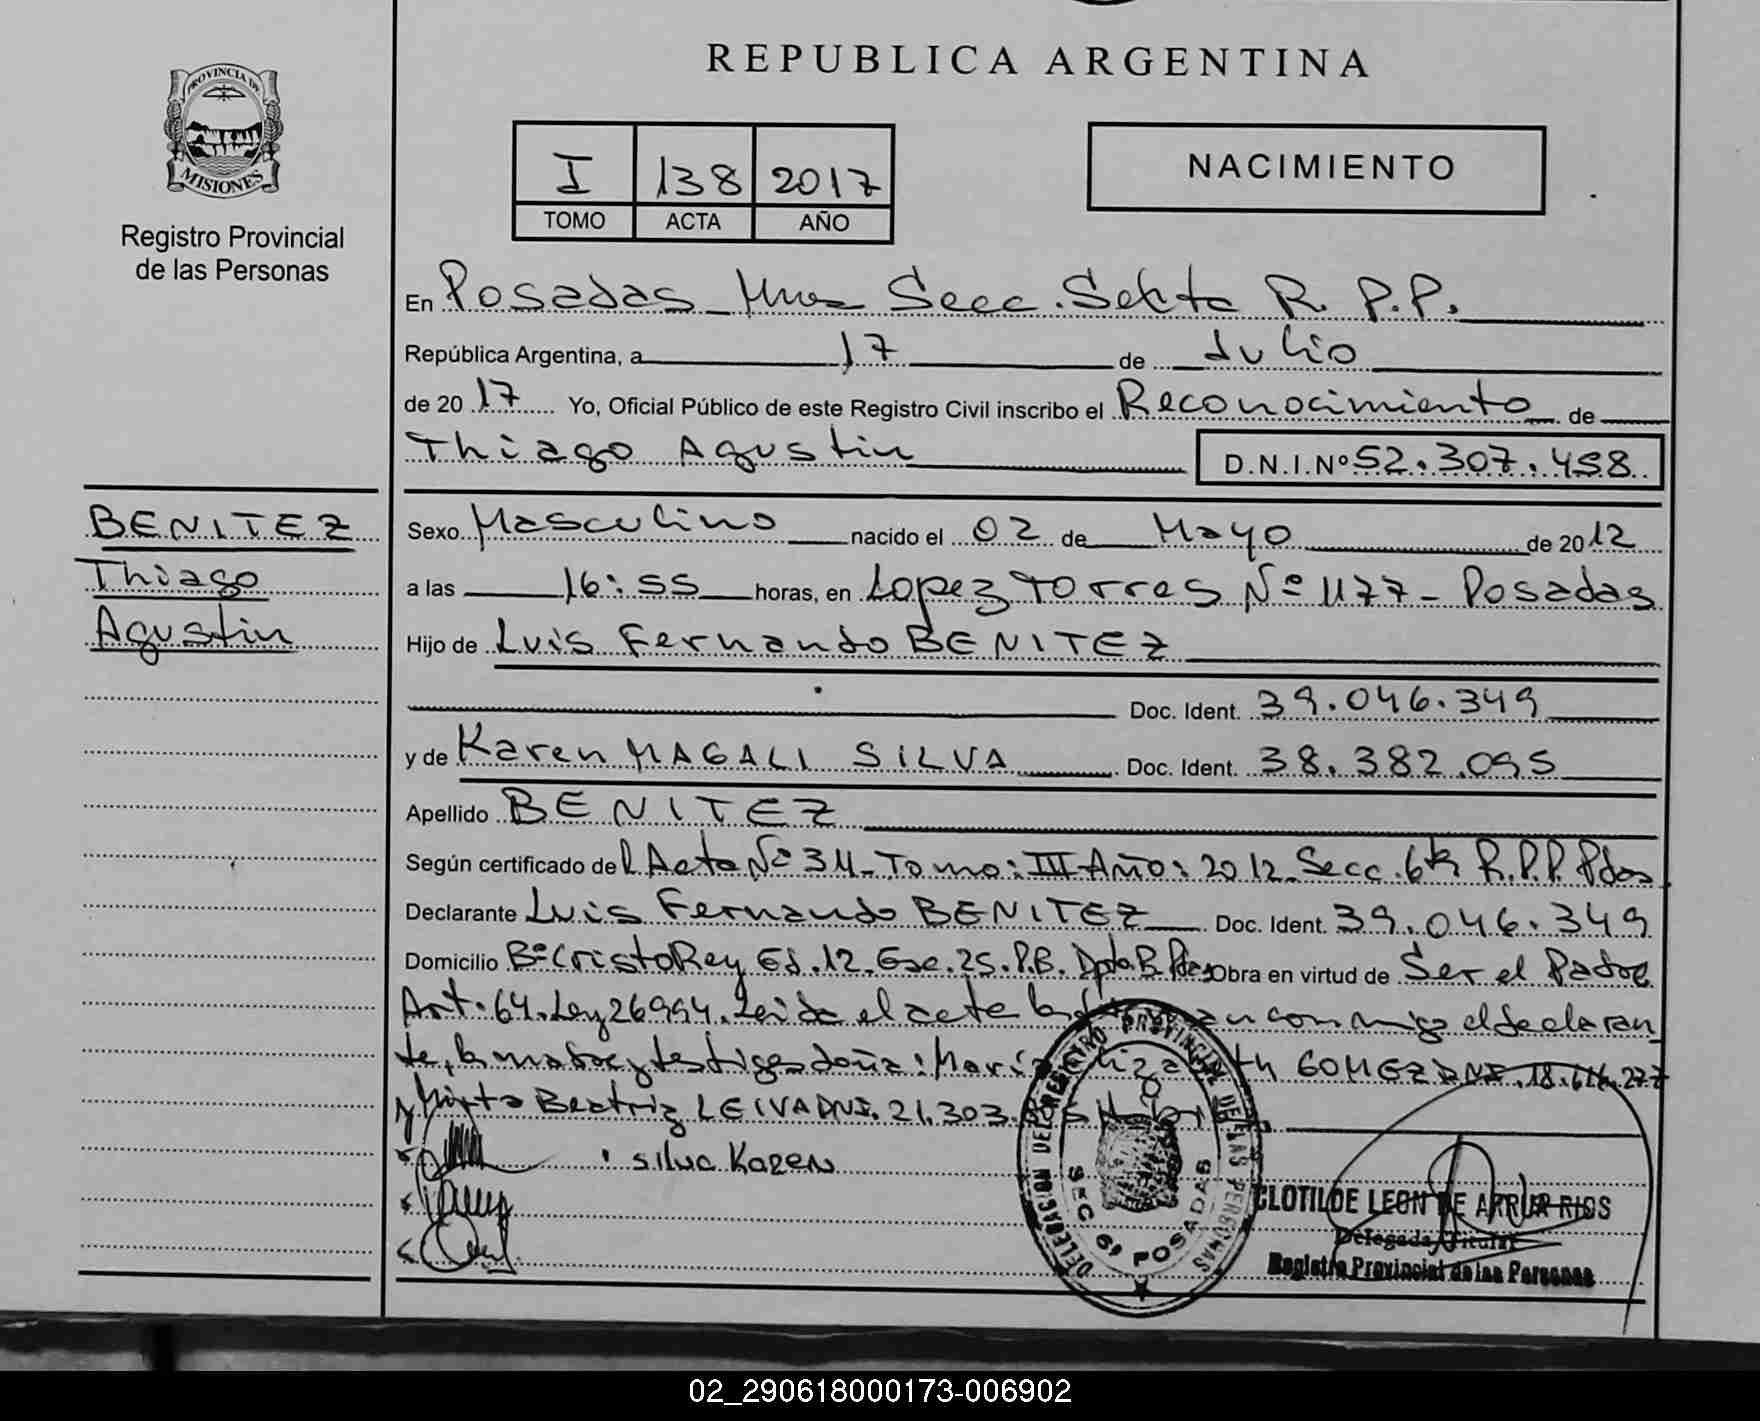 REPUBLICA ARGENTINA
PROVINCIA DE
MISIONES
Registro Provincial
de las Personas
I 138 2017
TOMO ACTA AÑO
NACIMIENTO
En Posadas Mnes Secc. Sexta R. P.P.
República Argentina, a 17 de Julio
de 2017 Yo, Oficial Público de este Registro Civil inscribo el Reconocimiento de
Thiago Agustin D.N.I.Nº 52.307.458
BENITEZ
Thiago
Agustin
Sexo Masculino nacido el 02 de Mayo de 2012
a las 16:55 horas, en Lopez Torres Nº 1177 - Posadas
Hijo de Luis Fernando BENITEZ
Doc. Ident. 39.046.349
y de Karen MAGALI SILVA Doc. Ident. 38.382.095
Apellido BENITEZ
Según certificado del Acta Nº 311 - Tomo: III Año: 2012 Secc. 6ta R.P.P. Pdas
Declarante Luis Fernando BENITEZ Doc. Ident. 39.046.349
Domicilio Bº Cristo Rey Ed. 12. Esc. 25. P.B. Dpto B Pdas Obra en virtud de Ser el Padre
Art. 64. Ley 26994. Leida el acta la conmigo el declaran
te, la madre y testigos doña: María GOMEZ DNI. 18. 277
y Mirta Beatriz LEIVA DNI. 21.303.
Silva Karen
DELEGACION DEL REGISTRO PROVINCIAL DE LAS PERSONAS
SEC 6ª POSADAS
CLOTILDE LEON DE ARRUA RIOS
Delegada Titular
Registro Provincial de las Personas
02_290618000173-006902